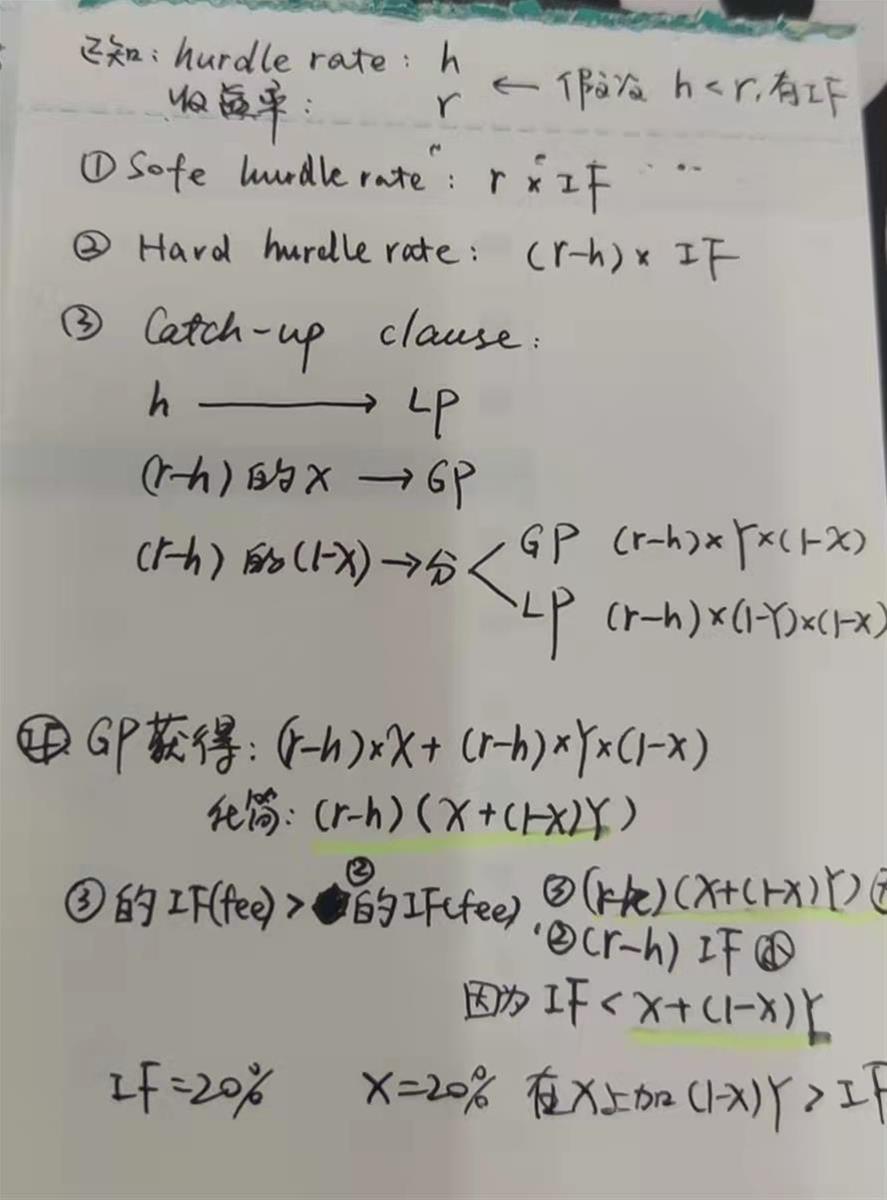 已知: hurdle rate: h
收益率: r ← 假设 h<r,有IF
① Sofe hurdle rate": r × IF
② Hard hurdle rate: (r-h)× IF
③ Catch-up clause:
h → LP
(r-h) 的X → GP
(r-h) 的(1-X) → 分 < GP (r-h)×Y×(1-X)
LP (r-h)×(1-Y)×(1-X)
IF GP获得: (r-h)×X+(r-h)×Y×(1-X)
化简: (r-h)(X+(1-X)Y)
③的IF(fee) > ②的IF(fee) ③(r-h)(X+(1-X)Y)
②(r-h) IF 小
因为 IF < X+(1-X)Y
IF=20% X=20% 在X上加(1-X)Y > IF